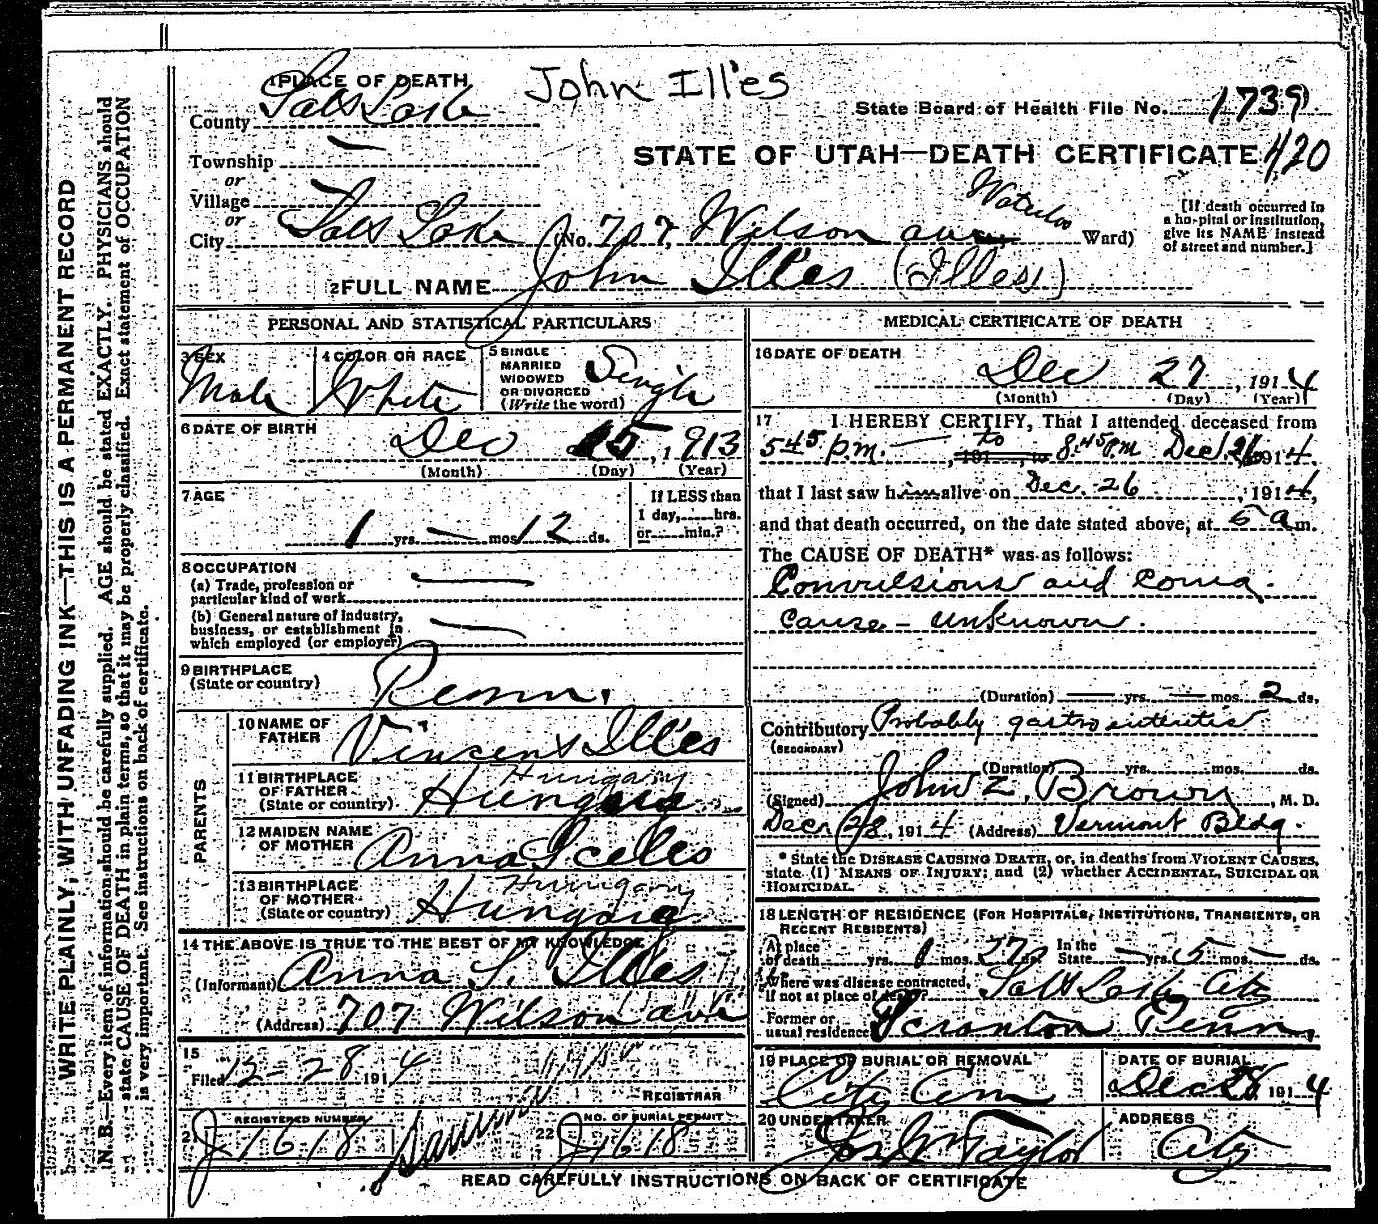 WRITE PLAINLY, WITH UNFADING INK—THIS IS A PERMANENT RECORD
N. B.—Every item of information should be carefully supplied. AGE should be stated EXACTLY. PHYSICIANS should
state CAUSE OF DEATH in plain terms, so that it may be properly classified. Exact statement of OCCUPATION
is very important. See instructions on back of certificate.
1 PLACE OF DEATH John Illes
County Salt Lake
State Board of Health File No. 1739
Township —
STATE OF UTAH—DEATH CERTIFICATE 420
or
Village
or
City Salt Lake (No. 707 Wilson ave Waterloo Ward)
[If death occurred in
a hospital or institution,
give its NAME instead
of street and number.]
2 FULL NAME John Illes (Illes)
PERSONAL AND STATISTICAL PARTICULARS
3 SEX Male
4 COLOR OR RACE White
5 SINGLE
MARRIED
WIDOWED
OR DIVORCED
(Write the word) Single
6 DATE OF BIRTH Dec 15, 1913
(Month) (Day) (Year)
7 AGE
1 yrs. — mos. 12 ds.
If LESS than
1 day, hrs.
or min.?
8 OCCUPATION
(a) Trade, profession or
particular kind of work —
(b) General nature of industry,
business, or establishment in
which employed (or employer) —
9 BIRTHPLACE
(State or country) Penn.
PARENTS
10 NAME OF
FATHER Vincent Illes
11 BIRTHPLACE
OF FATHER
(State or country) Hungary
12 MAIDEN NAME
OF MOTHER Anna
13 BIRTHPLACE
OF MOTHER
(State or country) Hungary
14 THE ABOVE IS TRUE TO THE BEST OF MY KNOWLEDGE
(Informant) Anna S. Illes
(Address) 707 Wilson ave
15
Filed 12-28 1914
REGISTRAR
21 REGISTERED NUMBER J1618
22 NO. OF BURIAL PERMIT J1618
MEDICAL CERTIFICATE OF DEATH
16 DATE OF DEATH
Dec 27, 1914
(Month) (Day) (Year)
17 I HEREBY CERTIFY, That I attended deceased from
5 45 p.m. — to 8.45 PM Dec. 26 1914,
that I last saw him alive on Dec. 26, 1914,
and that death occurred, on the date stated above, at 5 a m.
The CAUSE OF DEATH* was as follows:
Convulsions and coma.
cause — unknown.
(Duration) — yrs. — mos. 2 ds.
Contributory Probably gastro enteritis
(SECONDARY)
(Duration) yrs. mos. ds.
(Signed) John Z. Brown, M. D.
Dec 28, 1914 (Address) Vermont Bldg.
* State the DISEASE CAUSING DEATH, or, in deaths from VIOLENT CAUSES,
state (1) MEANS OF INJURY; and (2) whether ACCIDENTAL, SUICIDAL OR
HOMICIDAL.
18 LENGTH OF RESIDENCE (FOR HOSPITALS, INSTITUTIONS, TRANSIENTS, OR
RECENT RESIDENTS)
At place
of death yrs. 1 mos. 27 ds. In the
State — yrs. 5 mos. — ds.
Where was disease contracted,
if not at place of death? Salt Lake City
Former or
usual residence Scranton Penn.
19 PLACE OF BURIAL OR REMOVAL
City Cem
DATE OF BURIAL
Dec 28 1914
20 UNDERTAKER
Jos Wm Taylor
ADDRESS
City
READ CAREFULLY INSTRUCTIONS ON BACK OF CERTIFICATE